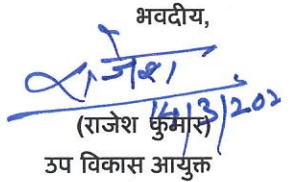 भवदीय,
राजेश
14/3/202
(राजेश कुमार)
उप विकास आयुक्त